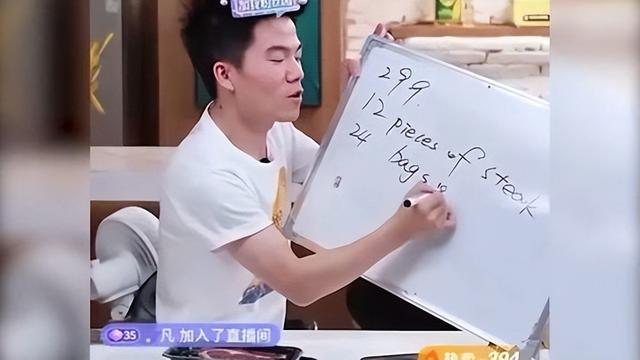 299.
12 pieces of steak
24 bags
35 。凡 加入了直播间
394